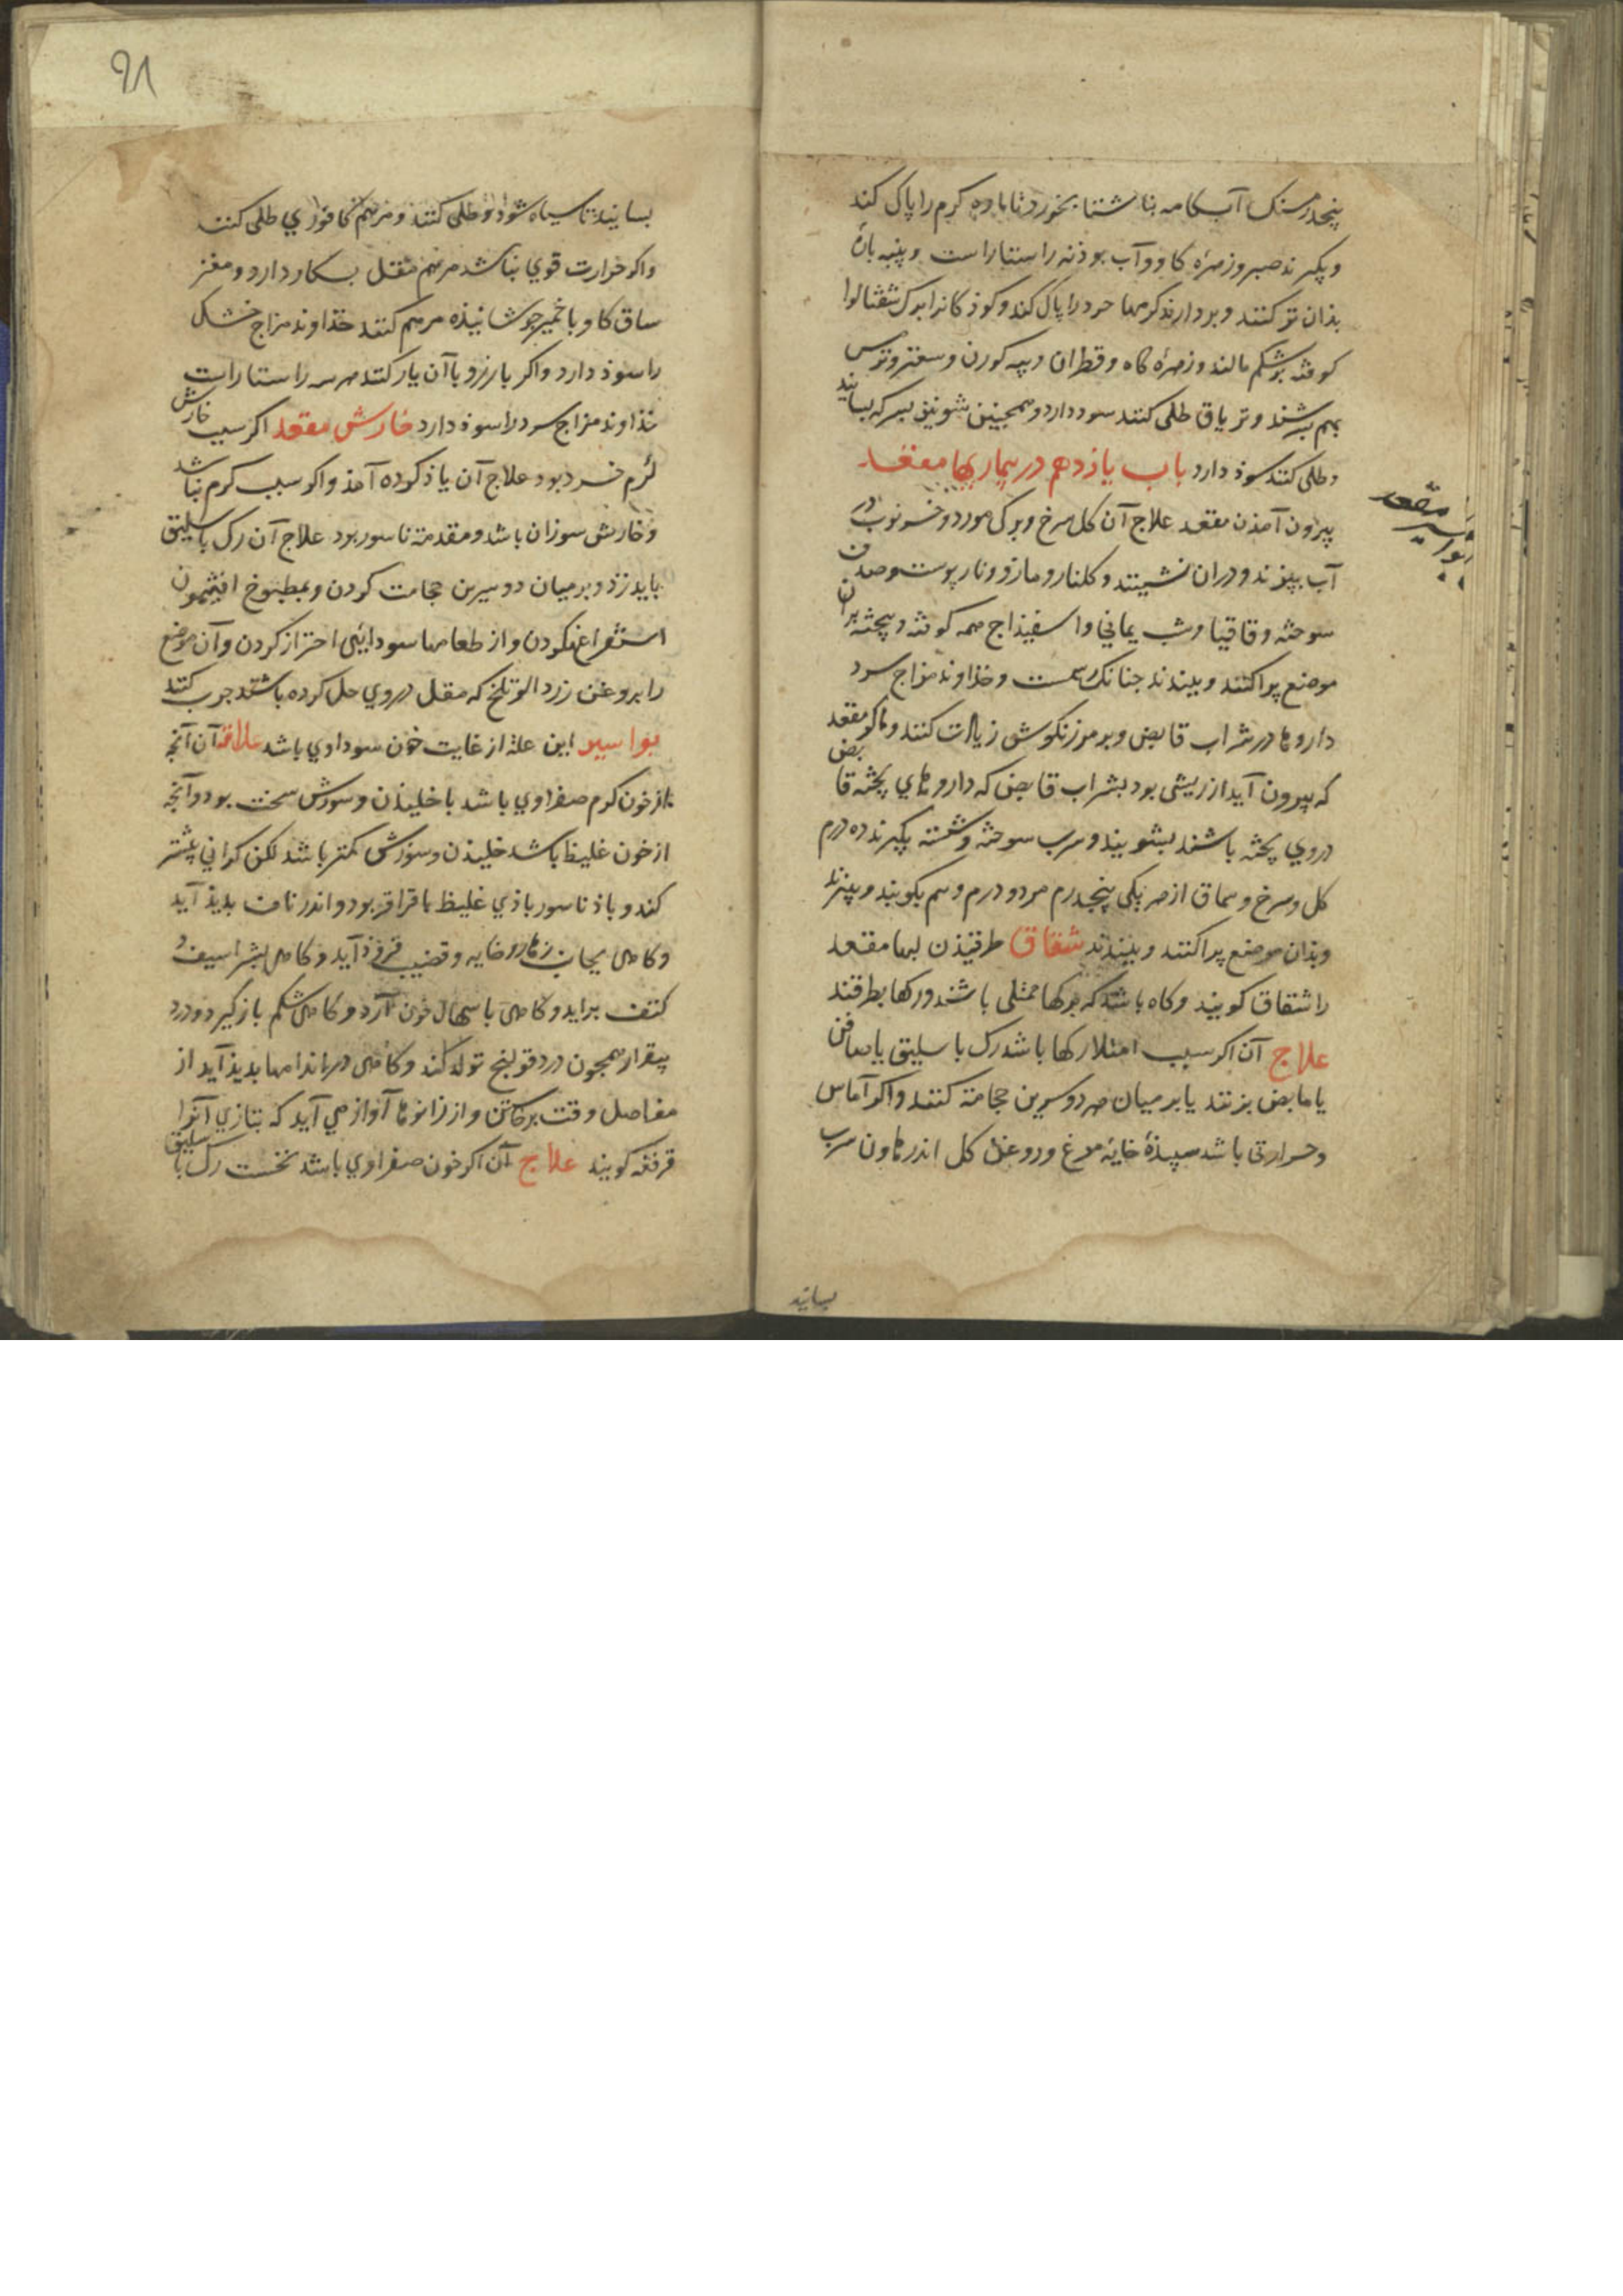 پنجدرمسنک آبکامه بناشتا بخورد تا باده کرم را پاک کند
وبکیرند صبر وزمرهٔ کاو وآب بوذنه راستاراست وپنبه بارهٔ
بذان تر کنند وبردارند کرمها خرد را پاک کند وکوذکانرا برک شفتالوا
کوفته برشکم مالند وزمرهٔ کاه وقطران وپیه کوزن وسعتر وترمس
بهم بسرشند وتریاق طلی کنند سود دارد وهمچنین شونیز بسرکه بسایند
وطلی کنند سوذ دارد باب یازدهم در بیماریها مقعد
بواسیر مقعد
بیرون آمذن مقعد علاج آن کل سرخ وبرک مورد وخرنوب در
آب ببزند ودران نشینند وکلنار ومازو ونارپوست وصدف
سوخته وقاقیا وشب یمانی واسفیذاج همه کوفته وبیخته بران
موضع پراکنند وببندند چنانک رسمست وخذاوند مزاج سرد
داروها در شراب قابض وبر مرزنکوش زیادت کنند واکر مقعد
که بیرون آید از ریشی بود بشراب قابض که داروهای پخته قابض
دروی پخته باشند بشویند وسرب سوخته وشسته بکیرند ده درم
کل سرخ وسماق از هر یکی پنجدرم مر دو درم وهم بکوبند وببزند
وبذان موضع پراکنند وببندند شقاق طرقیذن لبها مقعد
را شقاق کویند وکاه باشد که رکها ممتلی باشند ورکها بطرقند
علاج آن اکر سبب امتلا رکها باشد رک باسلیق یا صافن
یا مابض بزنند یا بر میان هر دو سرین حجامة کنند واکر آماس
وحرارتی باشد سپیذهٔ خایهٔ مرغ وروغن کل اندر هاون سرب
بسایند
۹۸
بسایند تا سیاه شود وطلی کنند ومرهم کافوری طلی کنند
واکر حرارت قوی نباشد مرهم مقل بکار دارد ومغز
ساق کاو با خمیر جوشانیذه مرهم کنند خذاوند مزاج خشک
را سوذ دارد واکر بارزد با آن یار کنند هر سه راستاراست
خذاوند مزاج سرد را سوذ دارد خارش مقعد اکر سبب خارش
کرم خرد بود علاج آن یاذ کرده آمذ واکر سبب کرم نباشد
وخارش سوزان باشد ومقدمهٔ ناسور بود علاج آن رک باسلیق
بایذ زد وبر میان دو سرین حجامت کردن وبمطبوخ افتیمون
استفراغ کردن واز طعامها سودایی احتراز کردن وآن موضع
را بروغن زردالو تلخ که مقل دروی حل کرده باشند چرب کنند
بواسیر این علة از غایت خون سوداوی باشد علامة آن آنچه
از خون کرم صفراوی باشد با خلیذن وسوزش سخت بود وآنچه
از خون غلیظ باشد خلیذن وسوزش کمتر باشد لکن کرانی بیشتر
کند وباذ ناسور باذی غلیظ با قراقر بود واندر ناف بدیذ آید
وکاهی بجانب زهار وخایه وقضیب فروذ آید وکاهی بشراسیف و
کتف براید وکاهی باسهال خون آرد وکاهی شکم باز کیرد ودرد
بیقرار همچون درد قولنج تولد کند وکاهی در اندامها بدیذ آید از
مفاصل وقت برخاستن واز زانوها آواز می آید که بتازی آنرا
قرقعه کویند علاج آن اکر خون صفراوی باشد نخست رک باسلیق